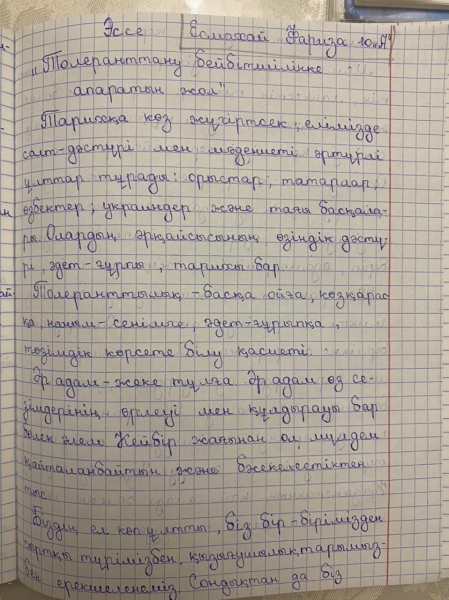 Эссе Есмахай Фариза 10 "Я"
"Толеранттану бейбітшілікке
апаратын жол"
Тарихқа көз жүгіртсек, елімізде
салт-дәстүрі мен мәдениеті әртүрлі
ұлттар тұрады: орыстар, татарлар,
өзбектер, украиндер және тағы басқала-
ры. Олардың әрқайсысының өзіндік дәстү-
рі, әдет-ғұрпы, тарихы бар
Толеранттылық - басқа ойға, көзқарас
қа, наным-сенімге, әдет-ғұрыпқа,
төзімдік көрсете білу қасиеті.
Әр адам - жеке тұлға Әр адам өз се-
зімдерінің өрлеуі мен құлдырауы бар
бөлек әлем Кейбір жағынан ол мүлдем
қайталанбайтын және
тыс.
Біздің ел көп ұлтты, біз бір-бірімізден
сыртқы түрімізбен, қызығушылықтарымыз-
бен ерекшеленеміз Сондықтан да біз